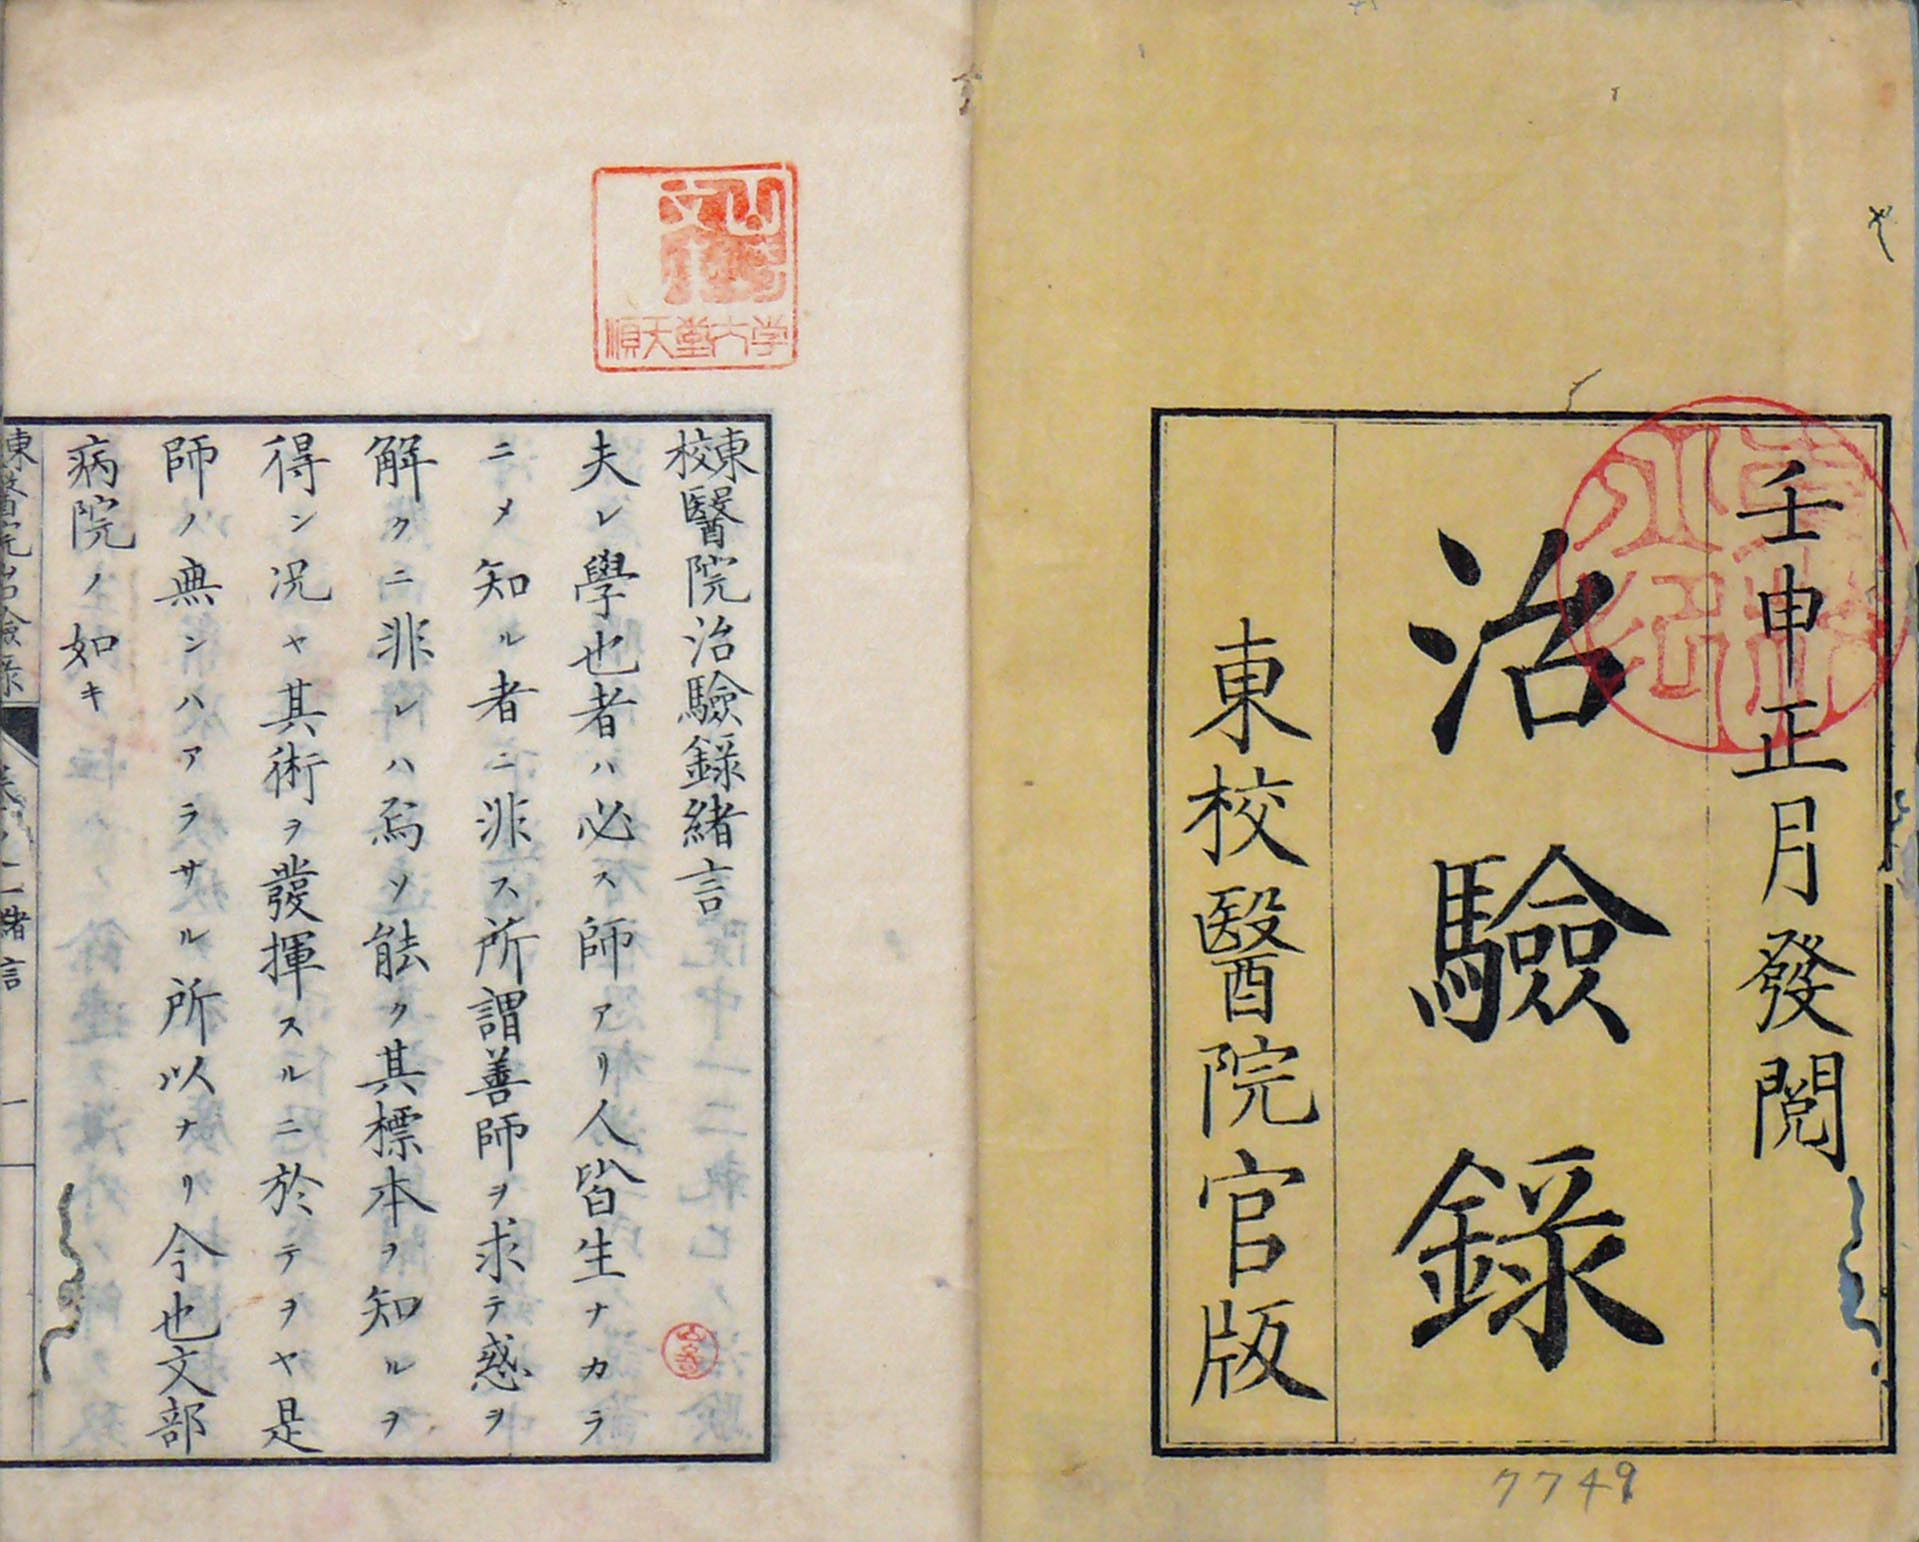 壬申正月發閲
治驗錄
東校醫院官版
7749
順天堂大学
東校醫院治驗録緒言
夫レ學也者ハ必ス師アリ人皆生ナカラ
ニメ知ル者ニ非ス所謂善師ヲ求テ惑ヲ
解クニ非レハ焉ソ能ク其標本ヲ知ルヲ
得ン况ヤ其術ヲ發揮スルニ於テヲヤ是
師ノ無ンハアラサル所以ナリ今也文部
病院ノ如キ
東醫院治驗録 緒言 一